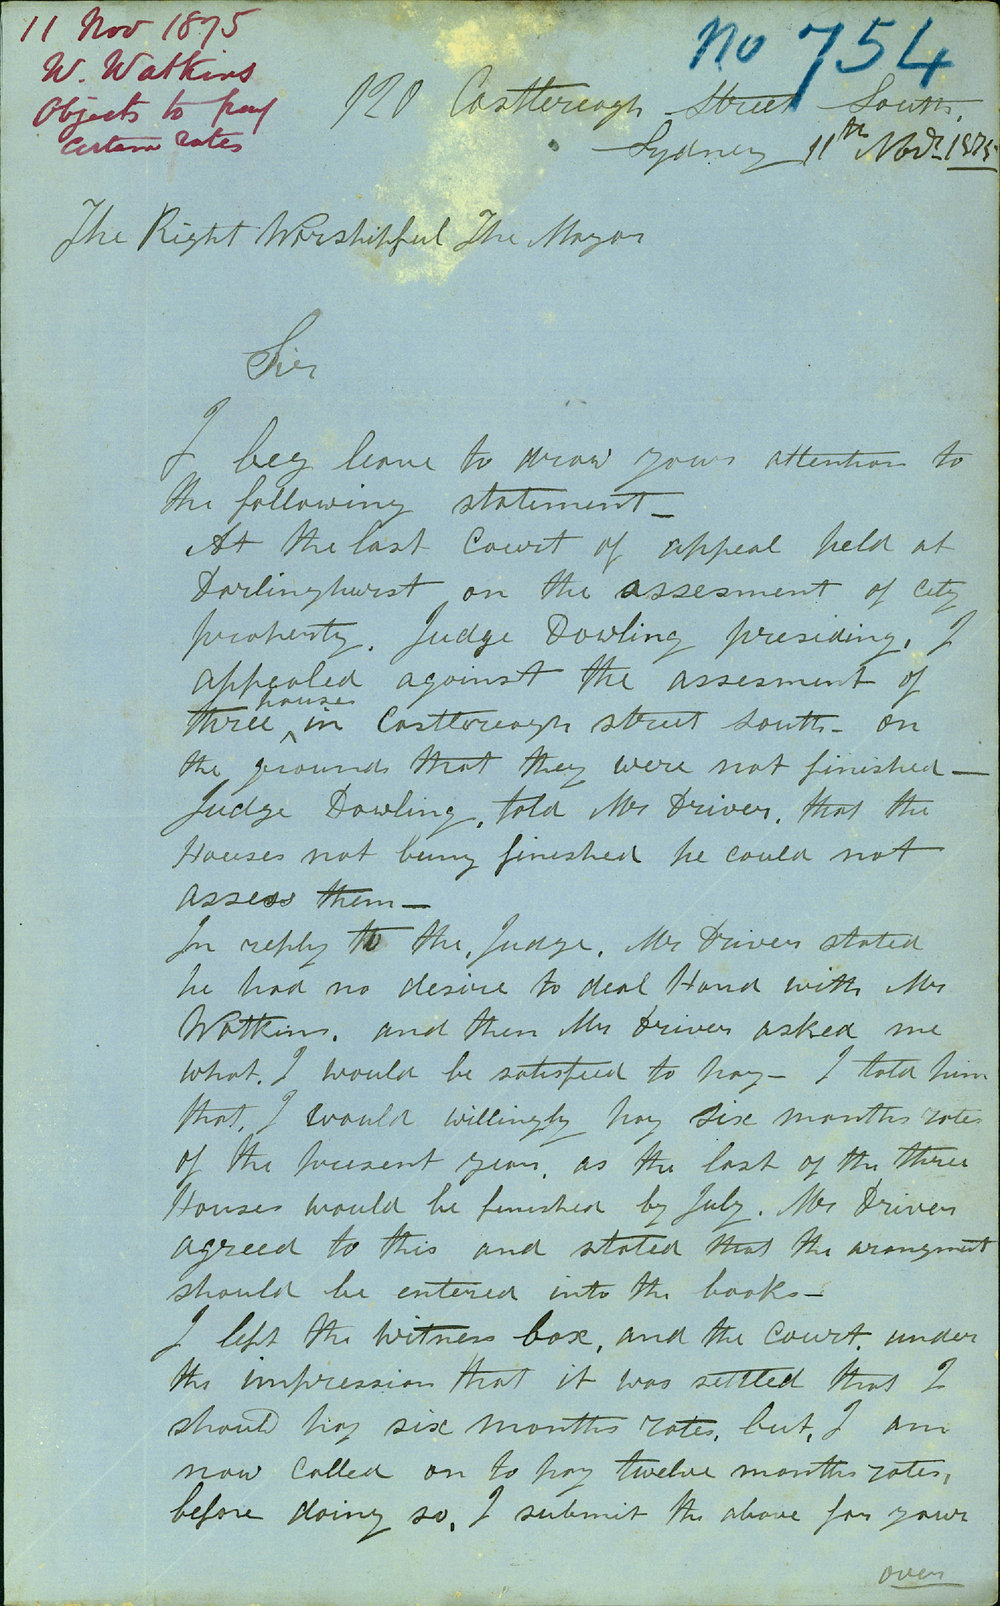 11 Nov 1875
W. Watkins
Objects to pay
certain rates
No 754
120 Castlereagh Street South.
Sydney 11th Novr. 1875
The Right Worshipful The Mayor
Sir
I beg leave to draw your attention to
the following statement_
At the last Court of appeal held at
Darlinghurst on the assesment of city
property. Judge Dowling presiding, I
appealed against the assesment of
three houses in Castlereagh street south- on
the grounds that they were not finished—
Judge Dowling, told Mr Driver, that the
Houses not being finished he could not
assess them—
In reply to the, Judge, Mr Driver stated
he had no desire to deal Hard with Mr
Watkins. and then Mr Driver asked me
what, I would be satisfied to pay- I told him
that, I would willingly pay six months rates
of the present year, as the last of the three
Houses would be finished by July. Mr Driver
agreed to this and stated that the arangment
should be entered into the books—
I left the witness box, and the Court, under
the impression that it was settled that I
should pay six months rates, but, I am
now called on to pay twelve months rates,
before doing so, I submit the above for your
over